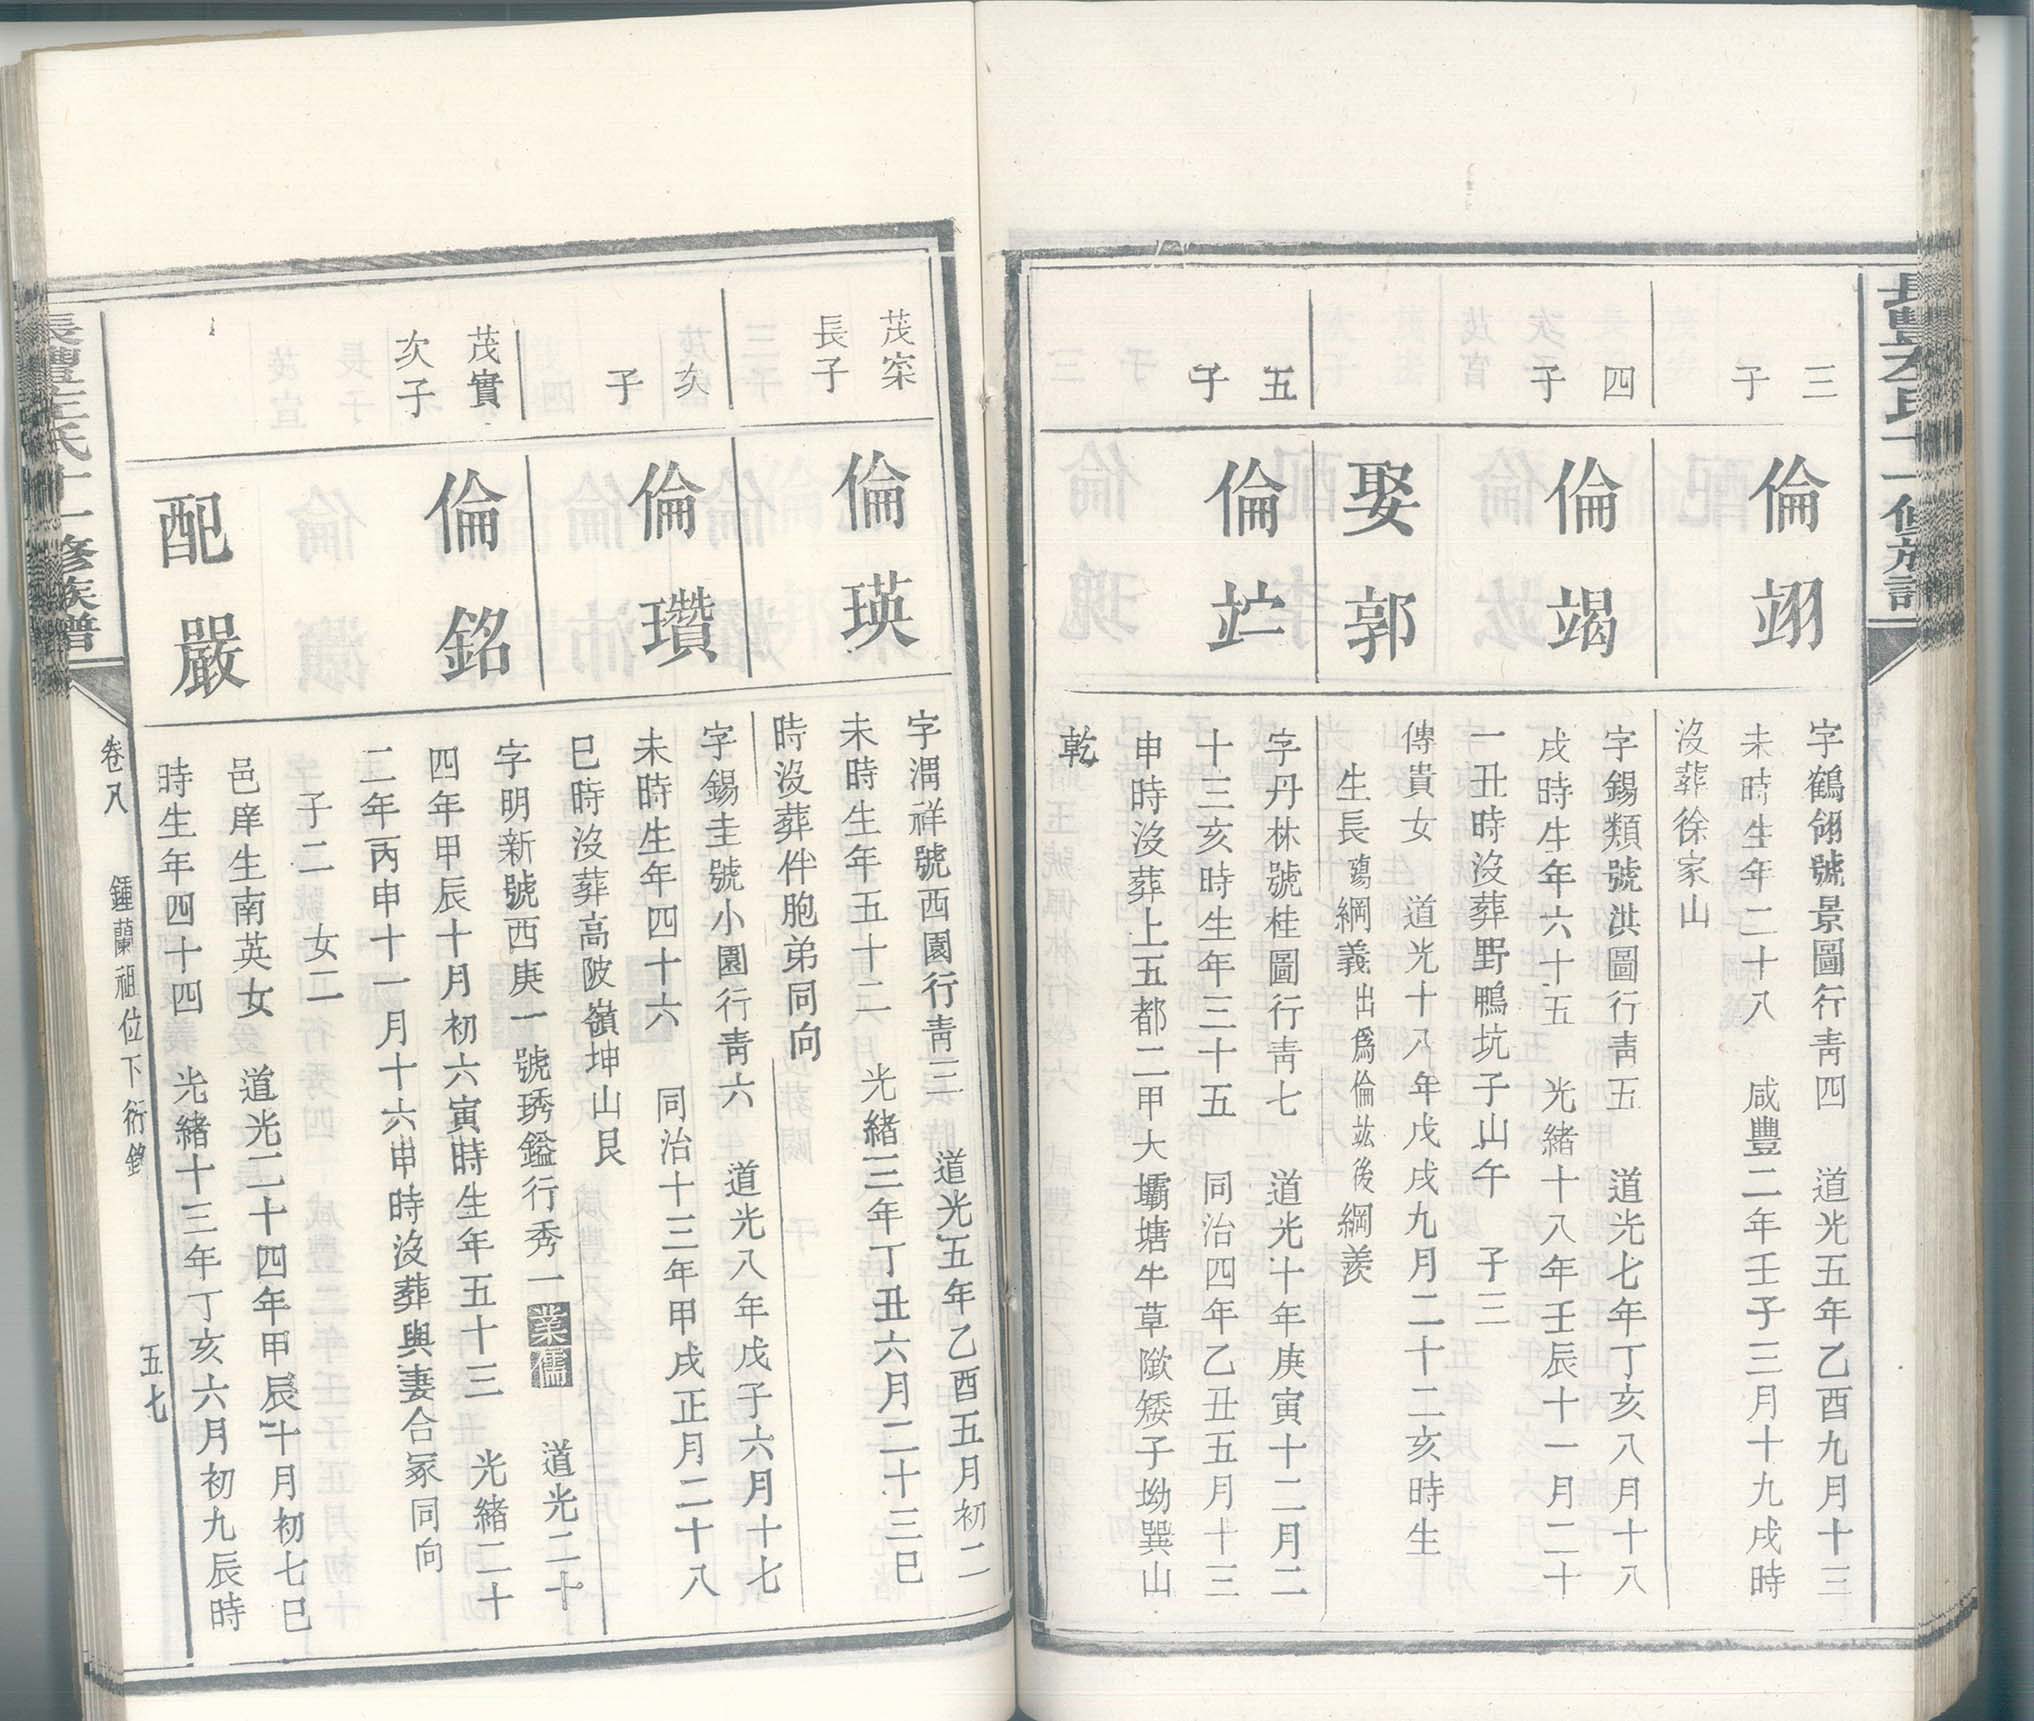 三
子
倫翊
字鶴翎號景圖行青四　道光五年乙酉九月十三
未時生年二十八　咸豐二年壬子三月十九戌時
沒葬徐家山
四
子
倫竭
字錫類號洪圖行青五　道光七年丁亥八月十八
戌時生年六十五　光緒十八年壬辰十一月二十
一丑時沒葬野鴨坑子山午　子三
娶郭
傳貴女　道光十八年戊戌九月二十二亥時生
生長殤綱義出爲倫竑後綱羨
五
子
字丹林號桂圖行青七　道光十年庚寅十二月二
十三亥時生年三十五　同治四年乙丑五月十三
申時沒葬上五都二甲大壩塘牛草隞矮子坳巽山
乾
茂寀
長子
倫瑛
字渭祥號西園行青三　道光五年乙酉五月初二
未時生年五十二　光緒三年丁丑六月二十三巳
時沒葬伴胞弟同向
次
子
倫瓚
字錫圭號小園行青六　道光八年戊子六月十七
未時生年四十六　同治十三年甲戌正月二十八
巳時沒葬高陂嶺坤山艮
茂實
次子
倫銘
字明新號西庚一號琇鎰行秀一業儒　道光二十
四年甲辰十月初六寅時生年五十三　光緒二十
二年丙申十一月十六申時沒葬與妻合冢同向
子二　女二
配嚴
邑庠生南英女　道光二十四年甲辰十月初七巳
時生年四十四　光緒十三年丁亥六月初九辰時
氏十一修族譜
卷八　鍾蘭祖位下衍銘　五七